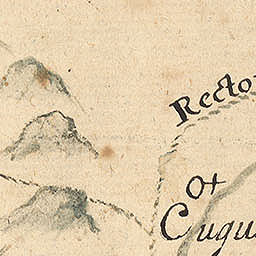 Recto
Cugu